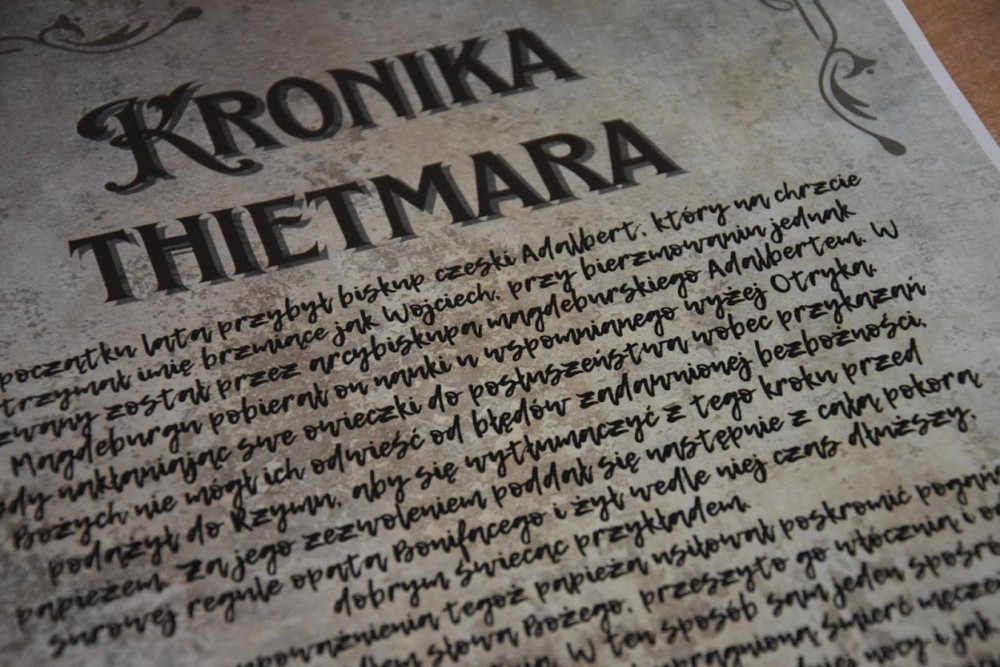 KRONIKA
THIETMARA
początku lata przybył biskup czeski Adalbert, który na chrzcie
trzymał imię brzmiące jak Wojciech, przy bierzmowaniu jednak
zwany został przez arcybiskupa magdeburskiego Adalbertem. W
Magdeburgu pobierał on nauki u wspomnianego wyżej Otryka.
dy nakłaniając swe owieczki do posłuszeństwa wobec przykazań
Bożych nie mógł ich odwieść od błędów zadawnionej bezbożności,
podążył do Rzymu, aby się wytłumaczyć z tego kroku przed
papieżem. Za jego zezwoleniem poddał się następnie z całą pokorą
surowej regule opata Bonifacego i żył wedle niej czas dłuższy,
dobrym świecąc przykładem.
upoważnienia tegoż papieża usiłował poskromić pogan
słowa Bożego, przeszyto go włócznią i
W ten sposób sam jeden spośró
śmierć męcze
nocy i jak